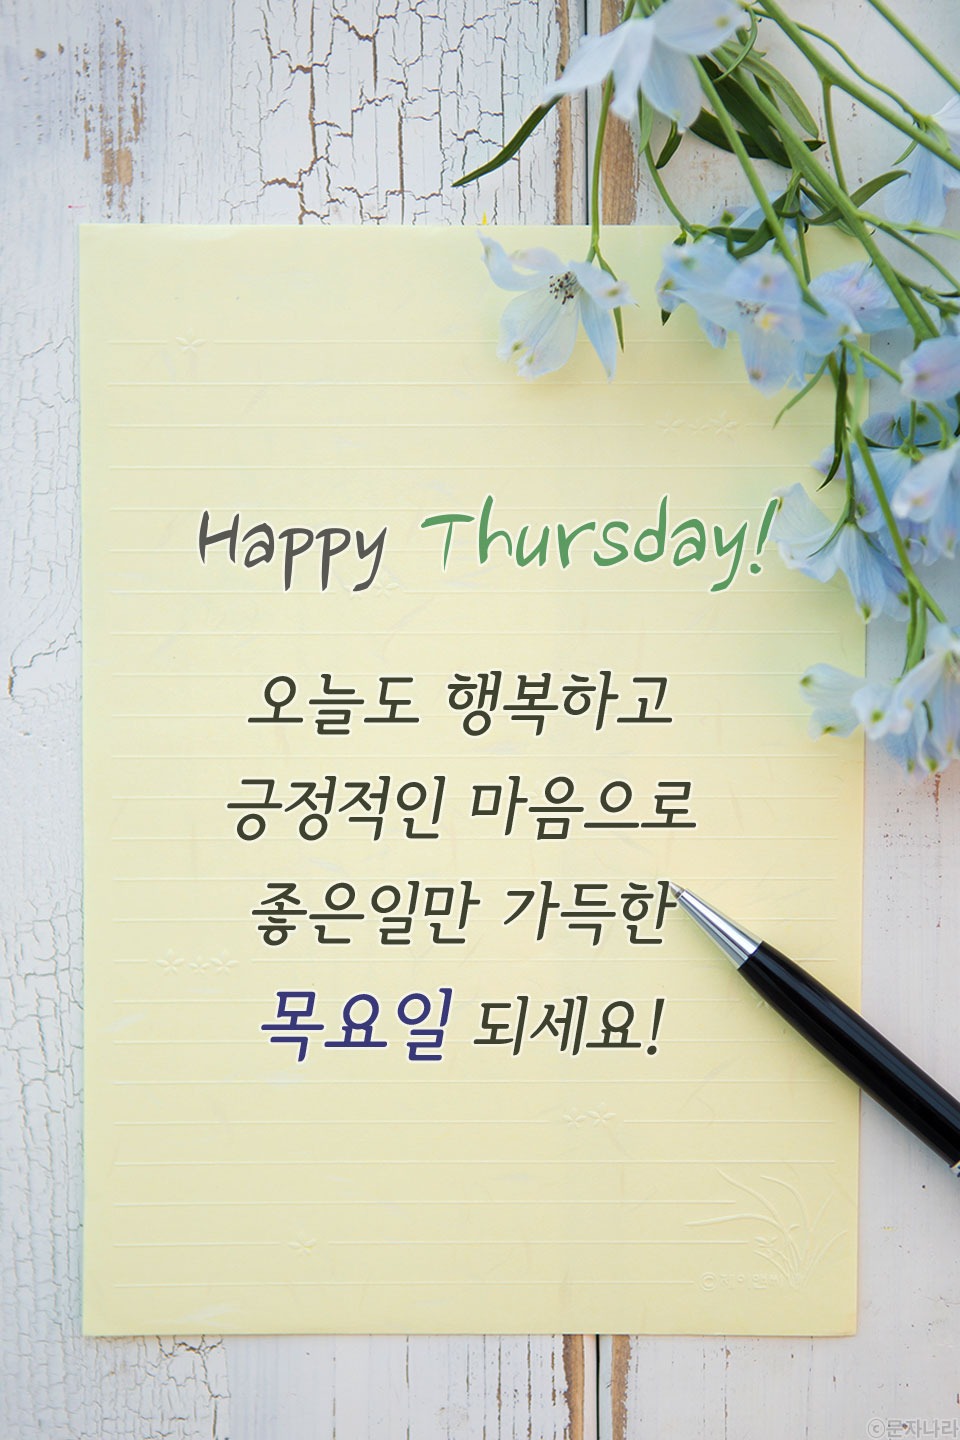 Happy Thursday!
오늘도 행복하고
긍정적인 마음으로
좋은일만 가득한
목요일 되세요!
ⓒ제이앤씨
ⓒ문자나라